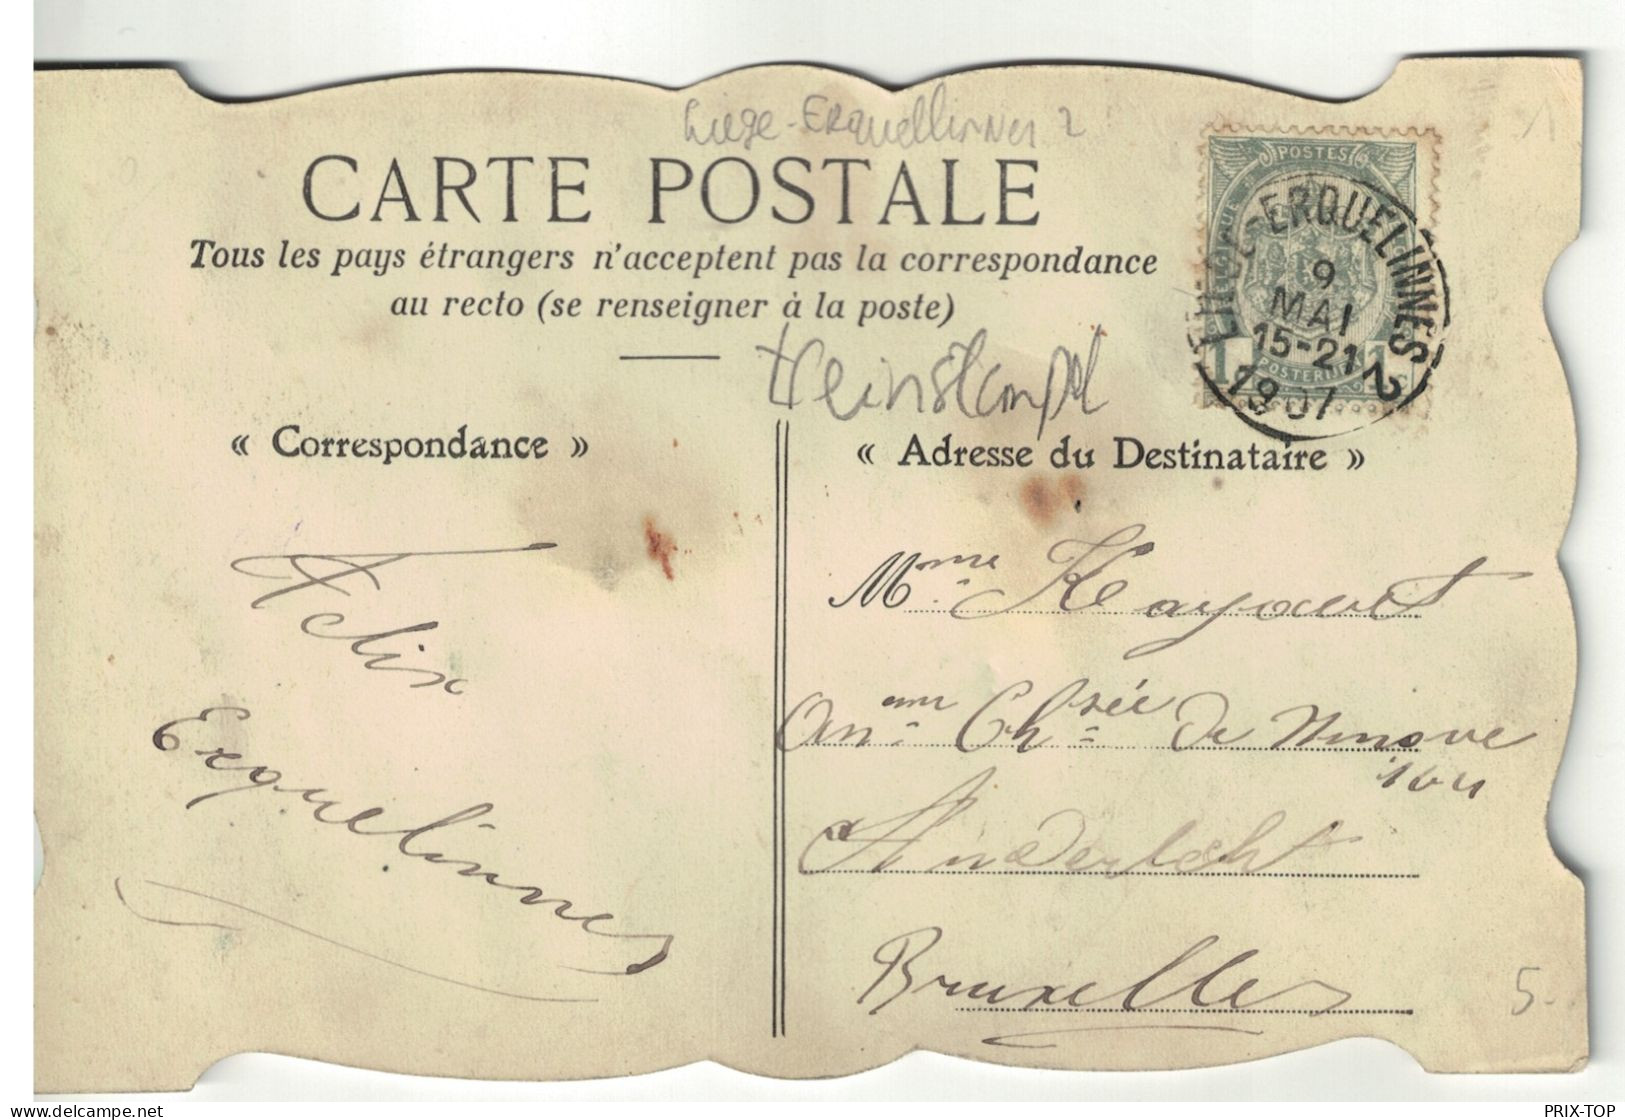 Liege-Erquellinnes 2
CARTE POSTALE
Tous les pays étrangers n'acceptent pas la correspondance
au recto (se renseigner à la poste)
treinstempel
POSTES
BELGIQUE
LIEGE-ERQUELINNES 2
9
MAI
15-21
1907
1c 1c
POSTERIJEN
« Correspondance »
« Adresse du Destinataire »
Felix
Erquelinnes
Mme
Anc. Chsée de Ninove
164
Anderlecht
Bruxelles
5-
https://www.delcampe.net
PRIX-TOP